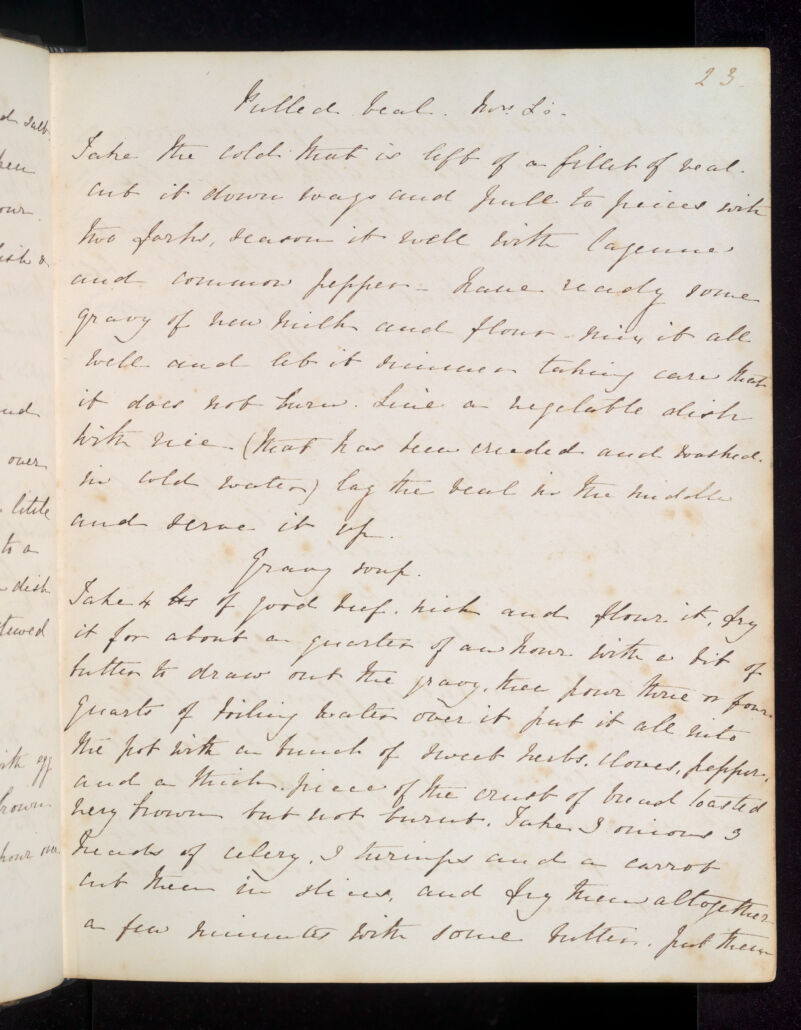 23
Pulled veal. Mrs L's.
Take the cold that is left of a fillet of veal.
cut it down ways and pull to peices with
two forks, season it well with Cayenne
and common pepper - have ready some
gravy of new milk and flour - mix it all
well and let it simmer taking care that
it does not burn. Line a vegetable dish
with rice (that has been creeded and washed
in cold water) lay the veal in the middle
and serve it up.
Gravy soup.
Take 4 lbs of good beef. nick and flour it, fry
it for about a quarter of an hour with a bit of
butter to draw out the gravy, then pour three or four
quarts of boiling water over it put it all into
the pot with a bunch of sweet herbs, cloves, pepper,
and a thick piece of the crust of bread toasted
very brown but not burnt. Take 3 onions 3
heads of celery, 3 turnips and a carrot
cut them in slices, and fry them altogether
a few minutes with some butter. put them
over
little
to a
dish